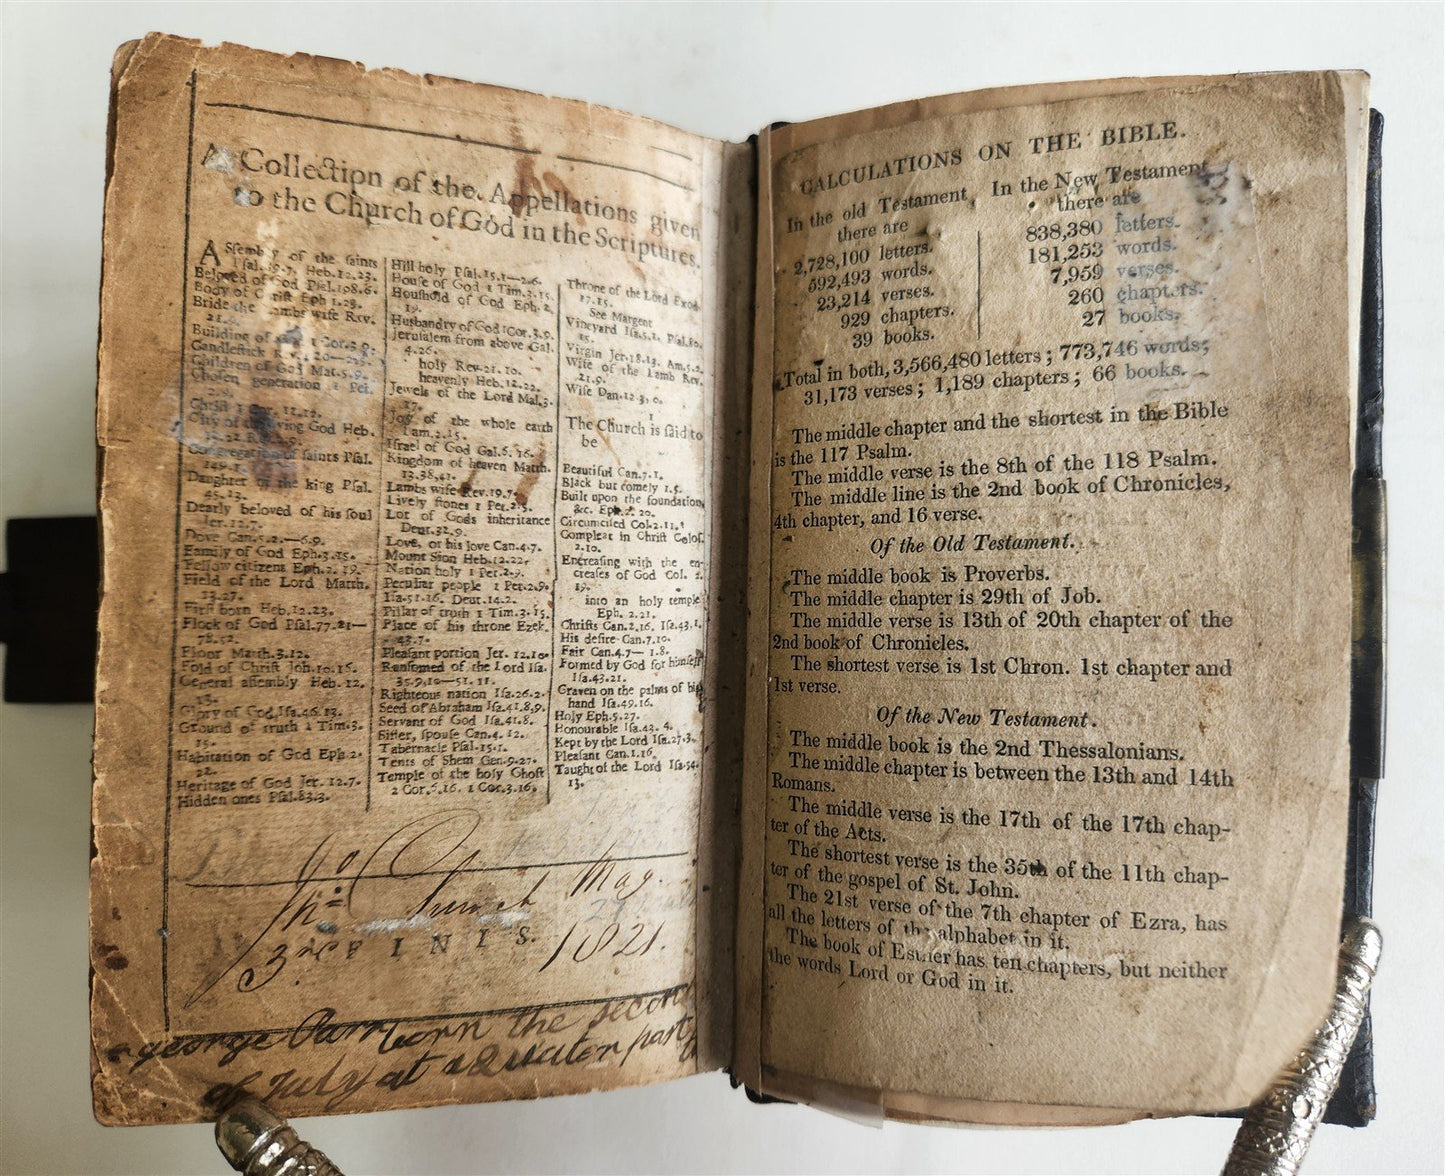 A Collection of the Appellations given
to the Church of God in the Scriptures.
ASsembly of the saints
Psal.89.7. Heb.12.23.
Beloved of God Psal.108.6.
Body of Christ Eph 1.23.
Bride the Lambs wife Rev.
21.9.
Building of God 1 Cor.3.9.
Candlestick Rev.1.20—2.5.
Children of God Mat.5.9.
Chosen generation 1 Pet.
2.9.
Christ 1 Cor. 12.12.
City of the living God Heb.
12.22. Rev.
Congregation of saints Psal.
149.1.
Daughter of the king Psal.
45.13.
Dearly beloved of his soul
Jer.12.7.
Dove Can.5.2.—6.9.
Family of God Eph.3.15.
Fellow citizens Eph.2. 19.
Field of the Lord Matth.
13.27.
First born Heb.12.23.
Flock of God Psal.77.21—
78.52.
Floor Matth.3.12.
Fold of Christ Joh.10.16.
General assembly Heb. 12.
23.
Glory of God,Isa.46.13.
Ground of truth 1 Tim.3.
15.
Habitation of God Eph.2.
22.
Heritage of God Jer. 12.7.
Hidden ones Psal.83.3.
Hill holy Psal.15.1—2.6.
House of God 1 Tim.3.15.
Houshold of God Eph.2.
19.
Husbandry of God 1Cor.3.9.
Jerusalem from above Gal.
4.26.
holy Rev.21.10.
heavenly Heb.12.22.
Jewels of the Lord Mal.3.
17.
Joy of the whole earth
Lam.2.15.
Israel of God Gal.6. 16.
Kingdom of heaven Matth.
13.38,41.
Lambs wife Rev.19.7.
Lively stones 1 Pet.2.5.
Lot of Gods inheritance
Deut.32.9.
Love, or his love Can.4.7.
Mount Sion Heb.12.22.
Nation holy 1 Pet.2.9.
Peculiar people 1 Pet.2.9.
Isa.51.16. Deut.14.2.
Pillar of truth 1 Tim.3.15.
Place of his throne Ezek.
43.7.
Pleasant portion Jer. 12.10.
Ransomed of the Lord Isa.
35.9,10—51.11.
Righteous nation Isa.26.2.
Seed of Abraham Isa.41.8,9.
Servant of God Isa.41.8.
Sister, spouse Can.4. 12.
Tabernacle Psal.15.1.
Tents of Shem Gen.9.27.
Temple of the holy Ghost
2 Cor.6.16. 1 Cor.3.16.
Throne of the Lord Exod.
17.15.
See Margent
Vineyard Isa.5.1. Psal.80.
15.
Virgin Jer.18.13. Am.5.2.
Wife of the Lamb Rev.
21.9.
Wise Dan.12.3,
The Church is said to
be
Beautiful Can.7.1.
Black but comely 1.5.
Built upon the foundation,
&c. Eph.2. 20.
Circumcised Col.2.11.
Compleat in Christ Colos.
2.10.
Encreasing with the en-
creases of God Col. 2.
19.
into an holy temple
Eph. 2.21.
Christs Can.2.16. Isa.43.1.
His desire Can.7.10.
Fair Can.4.7— 1.8.
Formed by God for himself
Isa.43.21.
Graven on the palms of his
hand Isa.49.16.
Holy Eph.5.27.
Honourable Isa.43. 4.
Kept by the Lord Isa.27.3.
Pleasant Can.1.16.
Taught of the Lord Isa.54.
13.
May
3rd FINIS. 1821.
george Parr born the second
of July at a Quater part
CALCULATIONS ON THE BIBLE.
In the old Testament
there are
2,728,100 letters.
592,493 words.
23,214 verses.
929 chapters.
39 books.
In the New Testament
there are
838,380 letters.
181,253 words.
7,959 verses.
260 chapters.
27 books.
Total in both, 3,566,480 letters ; 773,746 words;
31,173 verses ; 1,189 chapters ; 66 books.
The middle chapter and the shortest in the Bible
is the 117 Psalm.
The middle verse is the 8th of the 118 Psalm.
The middle line is the 2nd book of Chronicles,
4th chapter, and 16 verse.
Of the Old Testament.
The middle book is Proverbs.
The middle chapter is 29th of Job.
The middle verse is 13th of 20th chapter of the
2nd book of Chronicles.
The shortest verse is 1st Chron. 1st chapter and
1st verse.
Of the New Testament.
The middle book is the 2nd Thessalonians.
The middle chapter is between the 13th and 14th
Romans.
The middle verse is the 17th of the 17th chap-
ter of the Acts.
The shortest verse is the 35th of the 11th chap-
ter of the gospel of St. John.
The 21st verse of the 7th chapter of Ezra, has
all the letters of the alphabet in it.
The book of Esther has ten chapters, but neither
the words Lord or God in it.